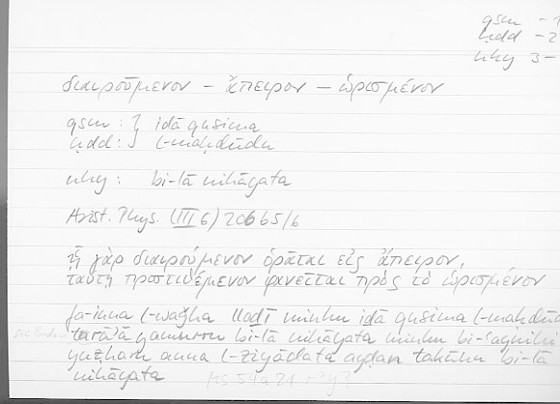 qsm - 1
ḥdd - 2
nhy 3 -
διαιρούμενον – ἄπειρον – ὡρισμένον
qsm : } iḏā qusima
ḥdd : } l-maḥdūdu
nhy : bi-lā nihāyata
Arist. Phys. (III 6) 206 b 5/6
ᾗ γὰρ διαιρούμενον ὁρᾶται εἰς ἄπειρον,
ταύτῃ προστιθέμενον φανεῖται πρὸς τὸ ὡρισμένον
fa-inna l-waǧha llaḏī minhu iḏā qusima l-maḥdūdu
bi-lā nihāyata minhu
yuẓharu anna l-ziyādata ayḍan takūnu bi-lā
nihāyata MS 54a21